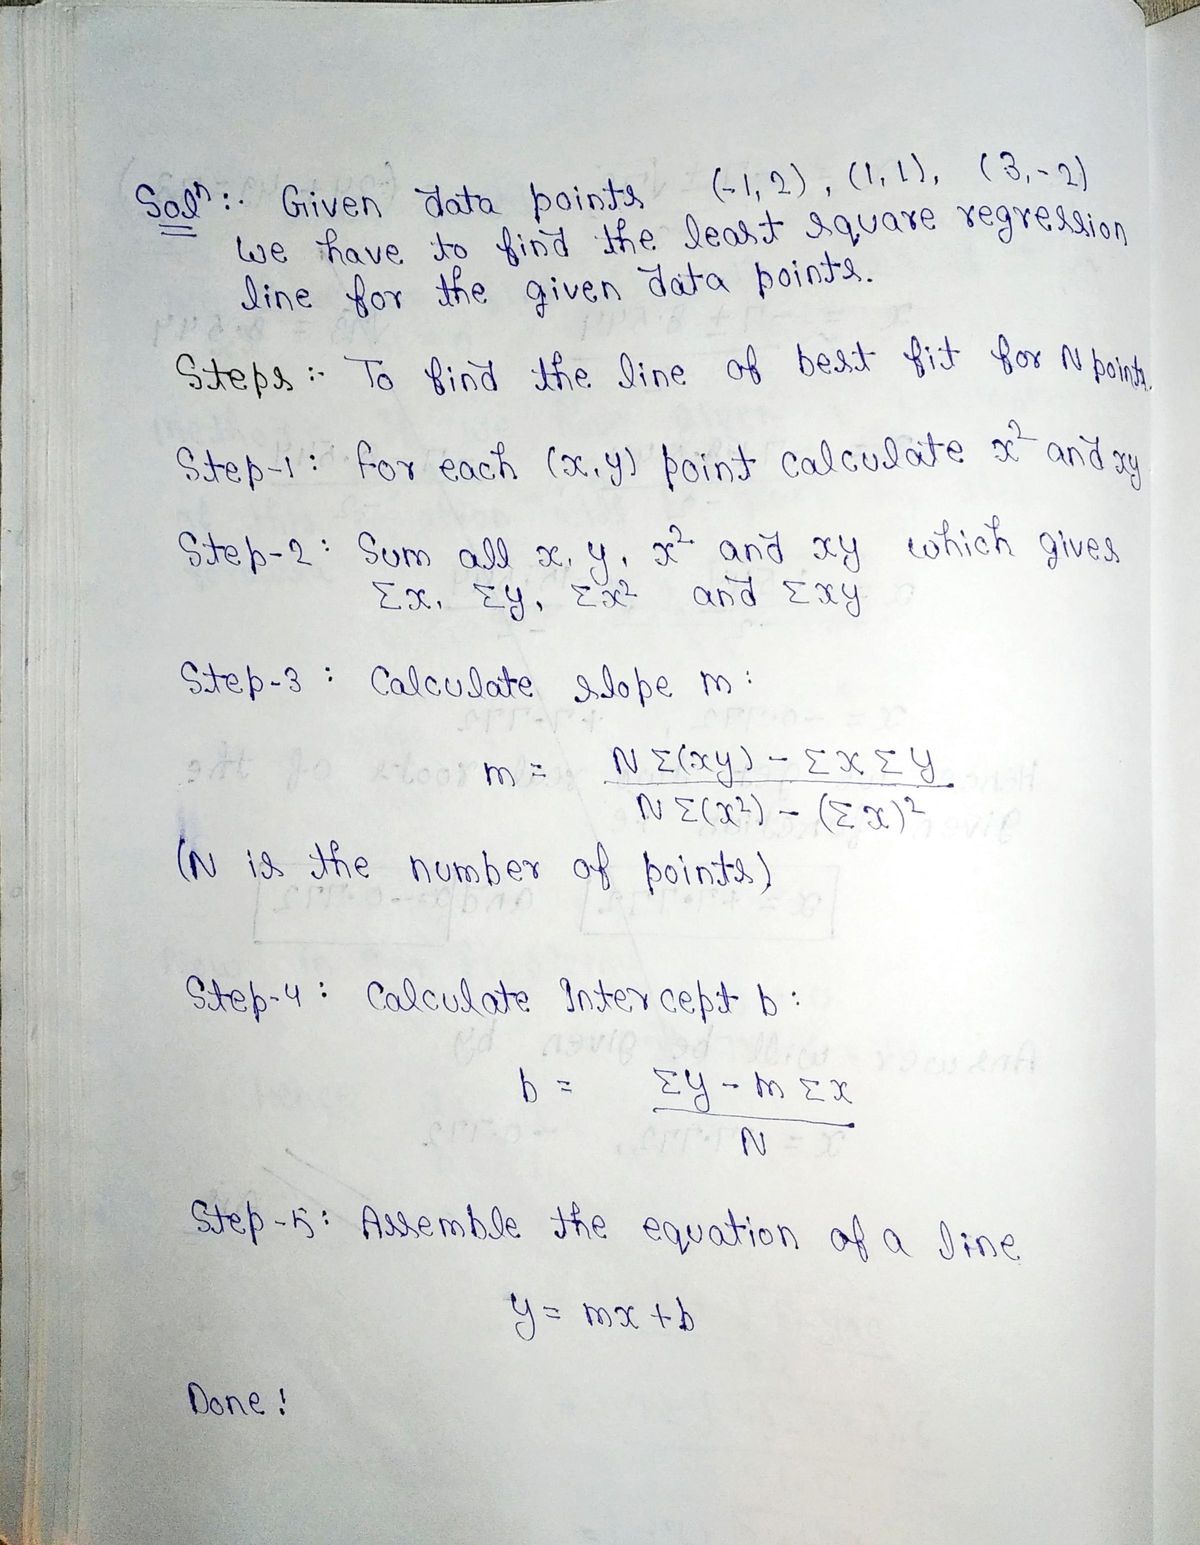 Solⁿ:- Given data points (-1, 2), (1, 1), (3, -2)
we have to find the least square regression
line for the given data points.
Steps :- To find the line of best fit for N points.
Step-1 : for each (x, y) point calculate x² and xy
Step-2 : Sum all x, y, x² and xy which gives
Σx, Σy, Σx² and Σxy
Step-3 : Calculate slope m :
m = N Σ(xy) - Σx Σy
N Σ(x²) - (Σx)²
(N is the number of points)
Step-4 : Calculate Intercept b :
b = Σy - m Σx
N
Step-5 : Assemble the equation of a line
y = mx + b
Done !